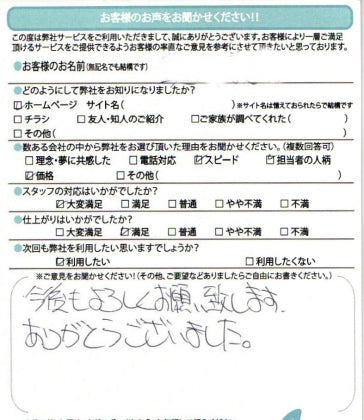 お客様のお声をお聞かせください!!
この度は弊社サービスをご利用いただきまして、誠にありがとうございます。お客様により一層ご満足
頂けるサービスをご提供できるようお客様の率直なご意見を参考にさせて頂きたいと思っております。
●お客様のお名前(無記名でも結構です)
●どのようにして弊社をお知りになりましたか?
☑ホームページ サイト名( )※サイト名は憶えておられたらで結構です
□チラシ □友人・知人のご紹介 □ご家族が調べてくれた( )
□その他( )
●数ある会社の中から弊社をお選び頂いた理由をお聞かせください。(複数回答可)
□理念・夢に共感した □電話対応 ☑スピード ☑担当者の人柄
☑価格 □その他( )
●スタッフの対応はいかがでしたか?
☑大変満足 □満足 □普通 □やや不満 □不満
●仕上がりはいかがでしたか?
□大変満足 ☑満足 □普通 □やや不満 □不満
●次回も弊社を利用したい思いますでしょうか?
☑利用したい □利用したくない
※ご意見をお聞かせください!(その他、ご要望などありましたらご自由にお書きください。)
今後もよろしくお願い致します。
ありがとうございました。